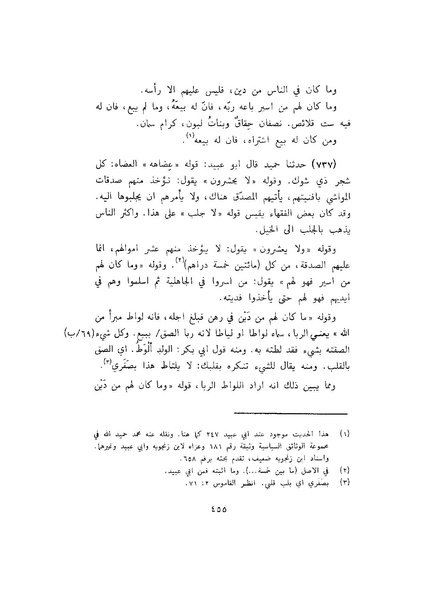 وما كان في الناس من دين، فليس عليهم الا رأسه.
وما كان لهم من اسير باعه ربّه، فانّ له بيعَهُ، وما لم يبع، فان له
فيه ست قلائص. نصفان حِقاقٌ وبناتُ لبون، كرام سمان.
ومن كان له بيع اشتراه، فان له بيعه(١).
(٧٣٧) حدثنا حميد قال ابو عبيد: قوله «عِضاهه» العضاه: كل
شجر ذي شوك. وقوله «لا يحشرون» يقول: تؤخذ منهم صدقات
المواشي بافنيتهم، يأتيهم المصدّق هناك، ولا يأمرهم ان يجلبوها اليه.
وقد كان بعض الفقهاء يقيس قوله «لا جلب» على هذا. واكثر الناس
يذهب بالجلب الى الخيل.
وقوله «ولا يعشرون» يقول: لا يؤخذ منهم عشر اموالهم، انما
عليهم الصدقة، من كل (مائتين خمسة دراهم)(٢). وقوله «وما كان لهم
من اسير فهو لهم» يقول: من اسروا في الجاهلية ثم اسلموا وهم في
ايديهم فهو لهم حتى يأخذوا فديته.
وقوله «ما كان لهم من دَيْن في رهن فبلغ اجله، فانه لواط مبرأ من
الله» يعني الربا، سماه لواطا او لياطا لانه ربا الصق/ ببيع. وكل شيء (٦٩/ب)
الصقته بشيء فقد لطته به. ومنه قول ابي بكر: الولد أَلْوَطُ. اي الصق
بالقلب. ومنه يقال للشيء تنكره بقلبك: لا يلتاط هذا بصَفَري(٣).
ومما يبين ذلك انه اراد اللواط الربا، قوله «وما كان لهم من دَيْن
(١) هذا الحديث موجود عند ابي عبيد ٢٤٧ كما هنا. ونقله عنه محمد حميد الله في
مجموعة الوثائق السياسية وثيقة رقم ١٨١ وعزاه لابن زنجويه وابي عبيد وغيرهما.
واسناد ابن زنجويه ضعيف، تقدم بحثه برقم ٦٥٨.
(٢) في الاصل (ما بين خمسة...). وما اثبته فمن ابي عبيد.
(٣) بصَفَري اي بلب قلبي. انظر القاموس ٢: ٧١.
٤٥٥